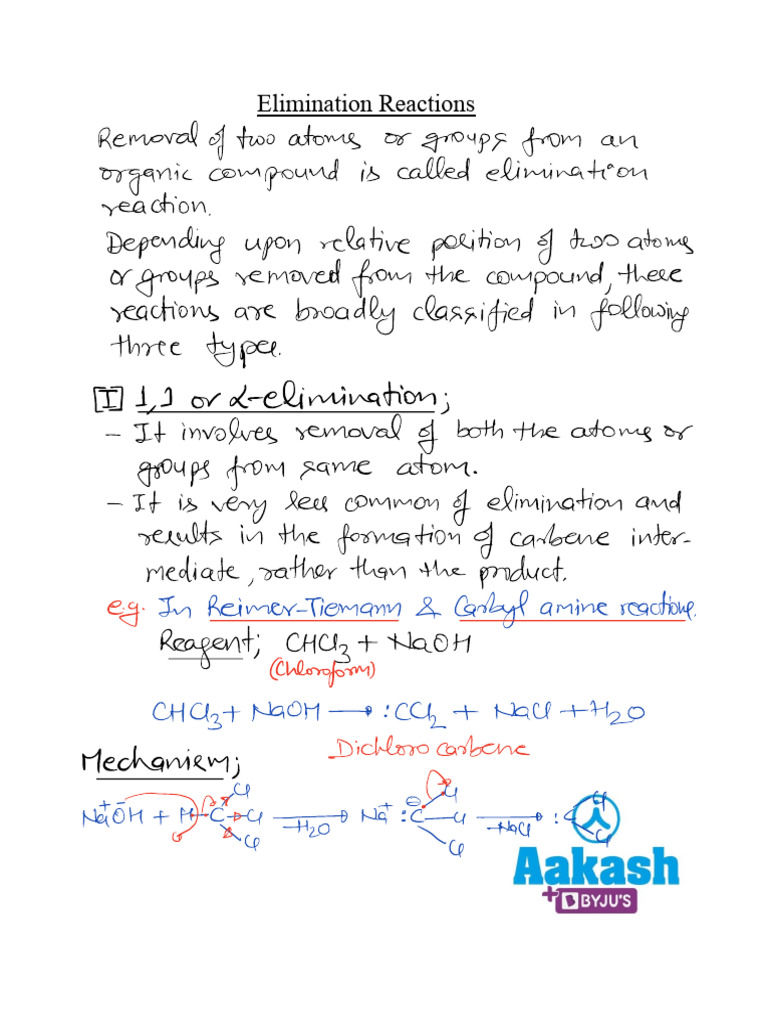 Elimination Reactions
Removal of two atoms or groups from an
organic compound is called elimination
reaction.
Depending upon relative position of two atoms
or groups removed from the compound, these
reactions are broadly classified in following
three types.
[I] 1,1 or α-elimination;
- It involves removal of both the atoms or
groups from same atom.
- It is very less common of elimination and
results in the formation of carbene inter-
mediate, rather than the product.
e.g. In Reimer-Tiemann & Carbyl amine reactions.
Reagent; CHCl₃ + NaOH
(Chloroform)
CHCl₃ + NaOH → :CCl₂ + NaCl + H₂O
Dichloro carbene
Mechanism;
Na⁺ ŌH + H-C-Cl Cl Cl -H₂O → Na⁺ :C⊖-Cl Cl Cl -NaCl → :C Cl Cl
Aakash
+ B BYJU'S